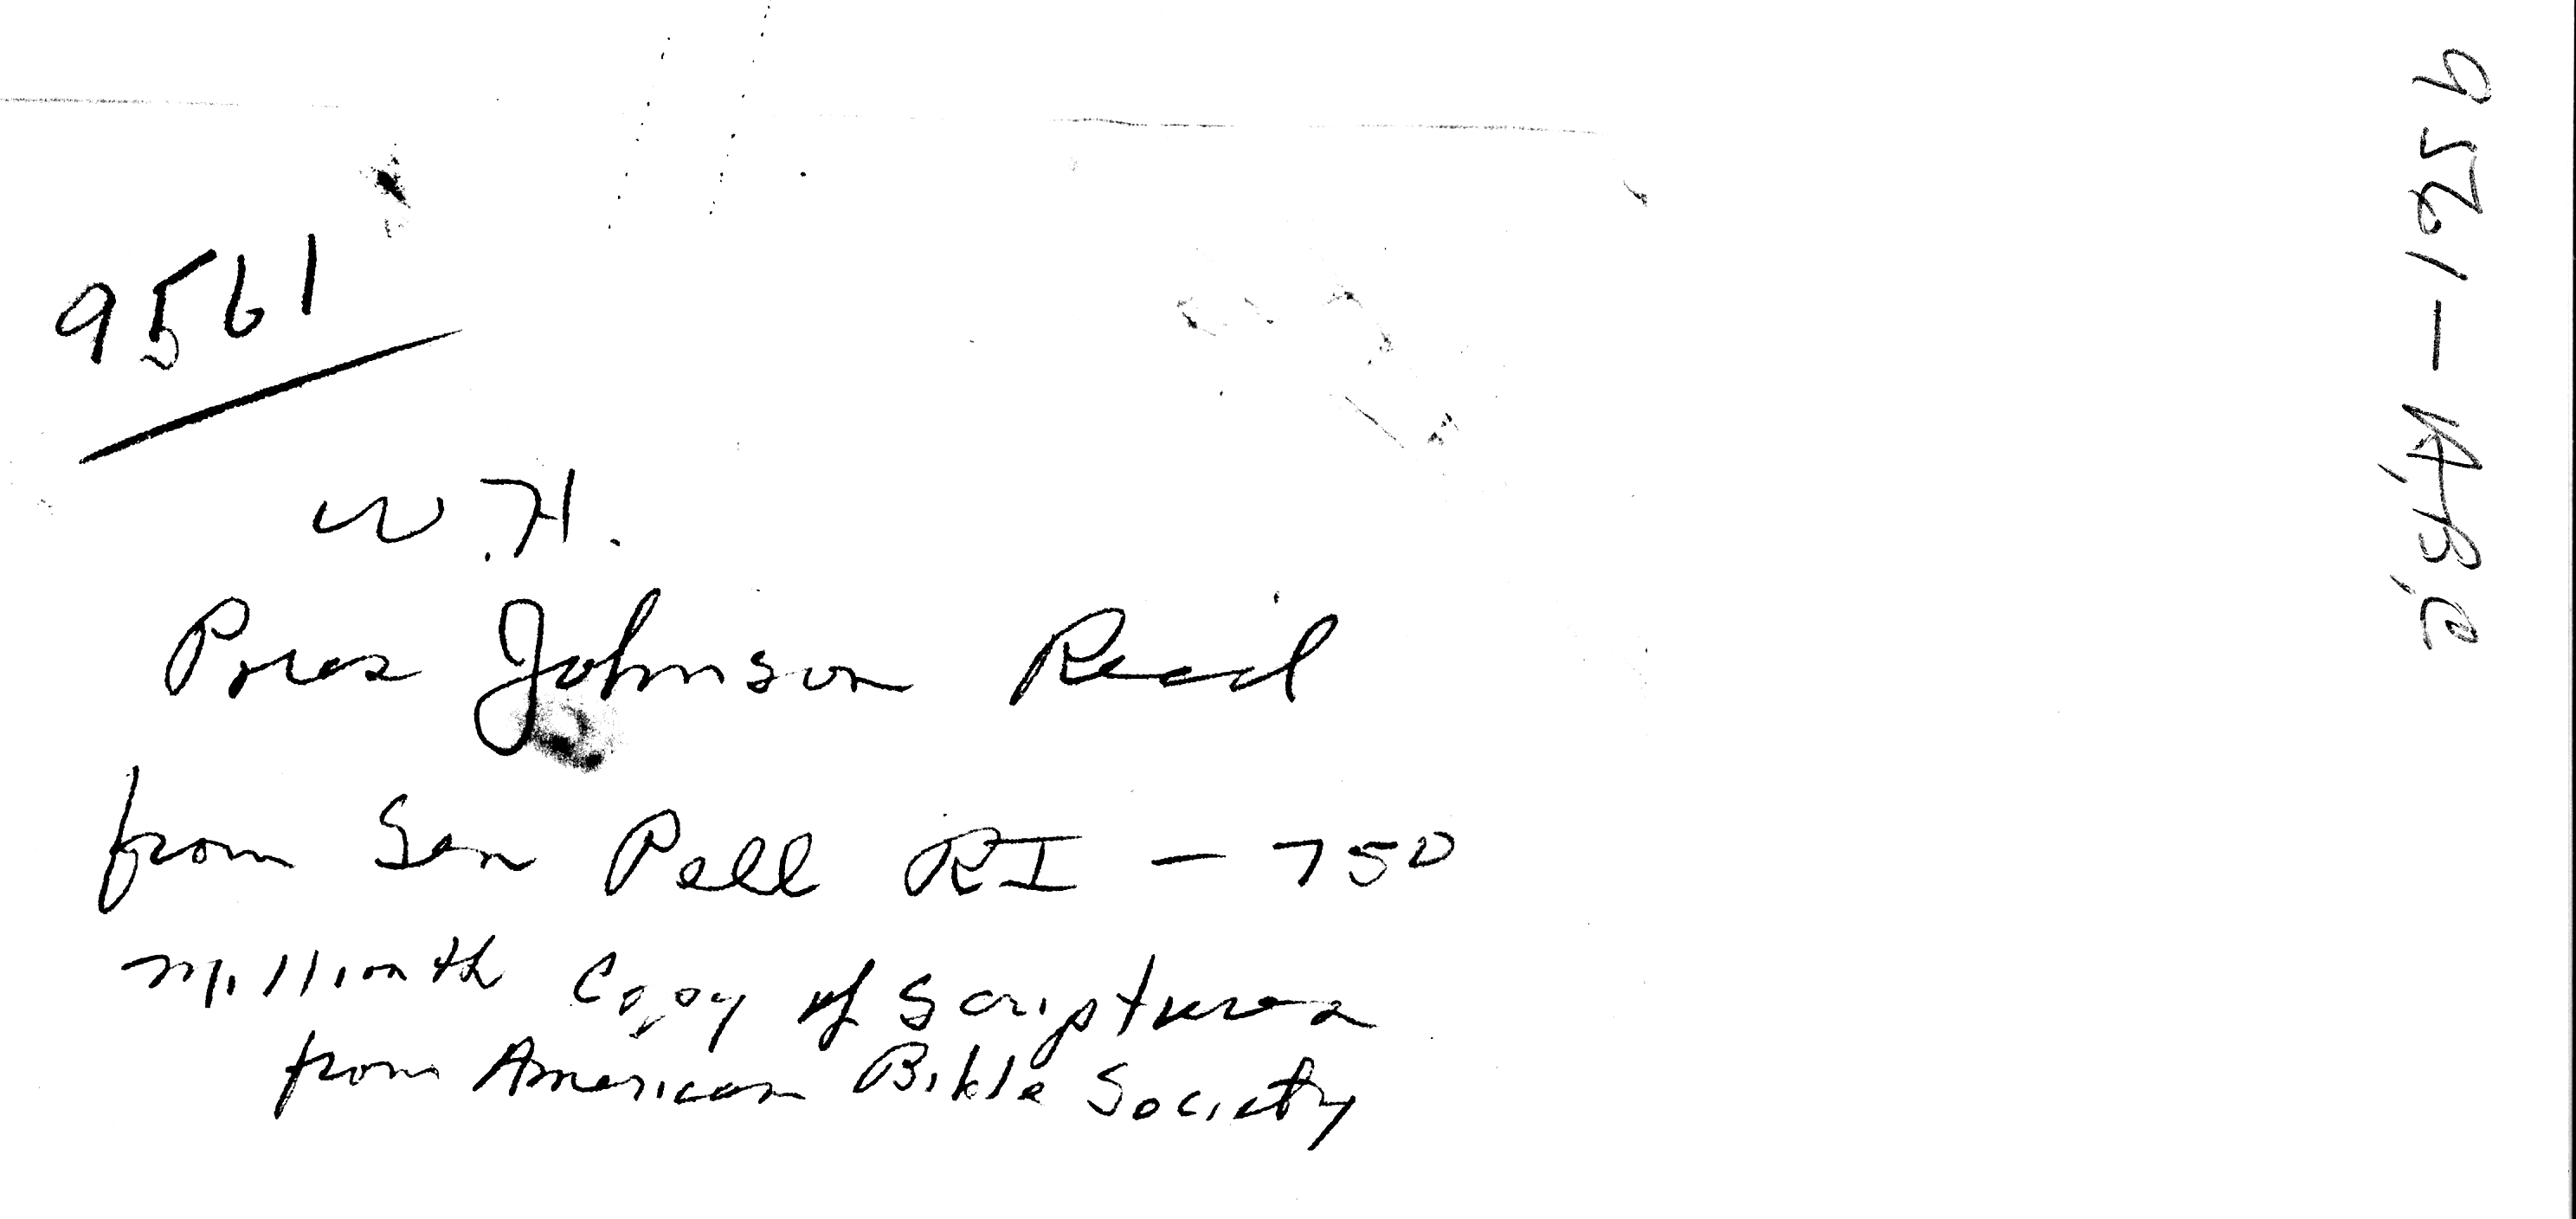 9561
W.H.
Pres Johnson Recd
from Sen Pell RI — 750
millionth Copy of Scriptures
from American Bible Society
9561 — A, B, C